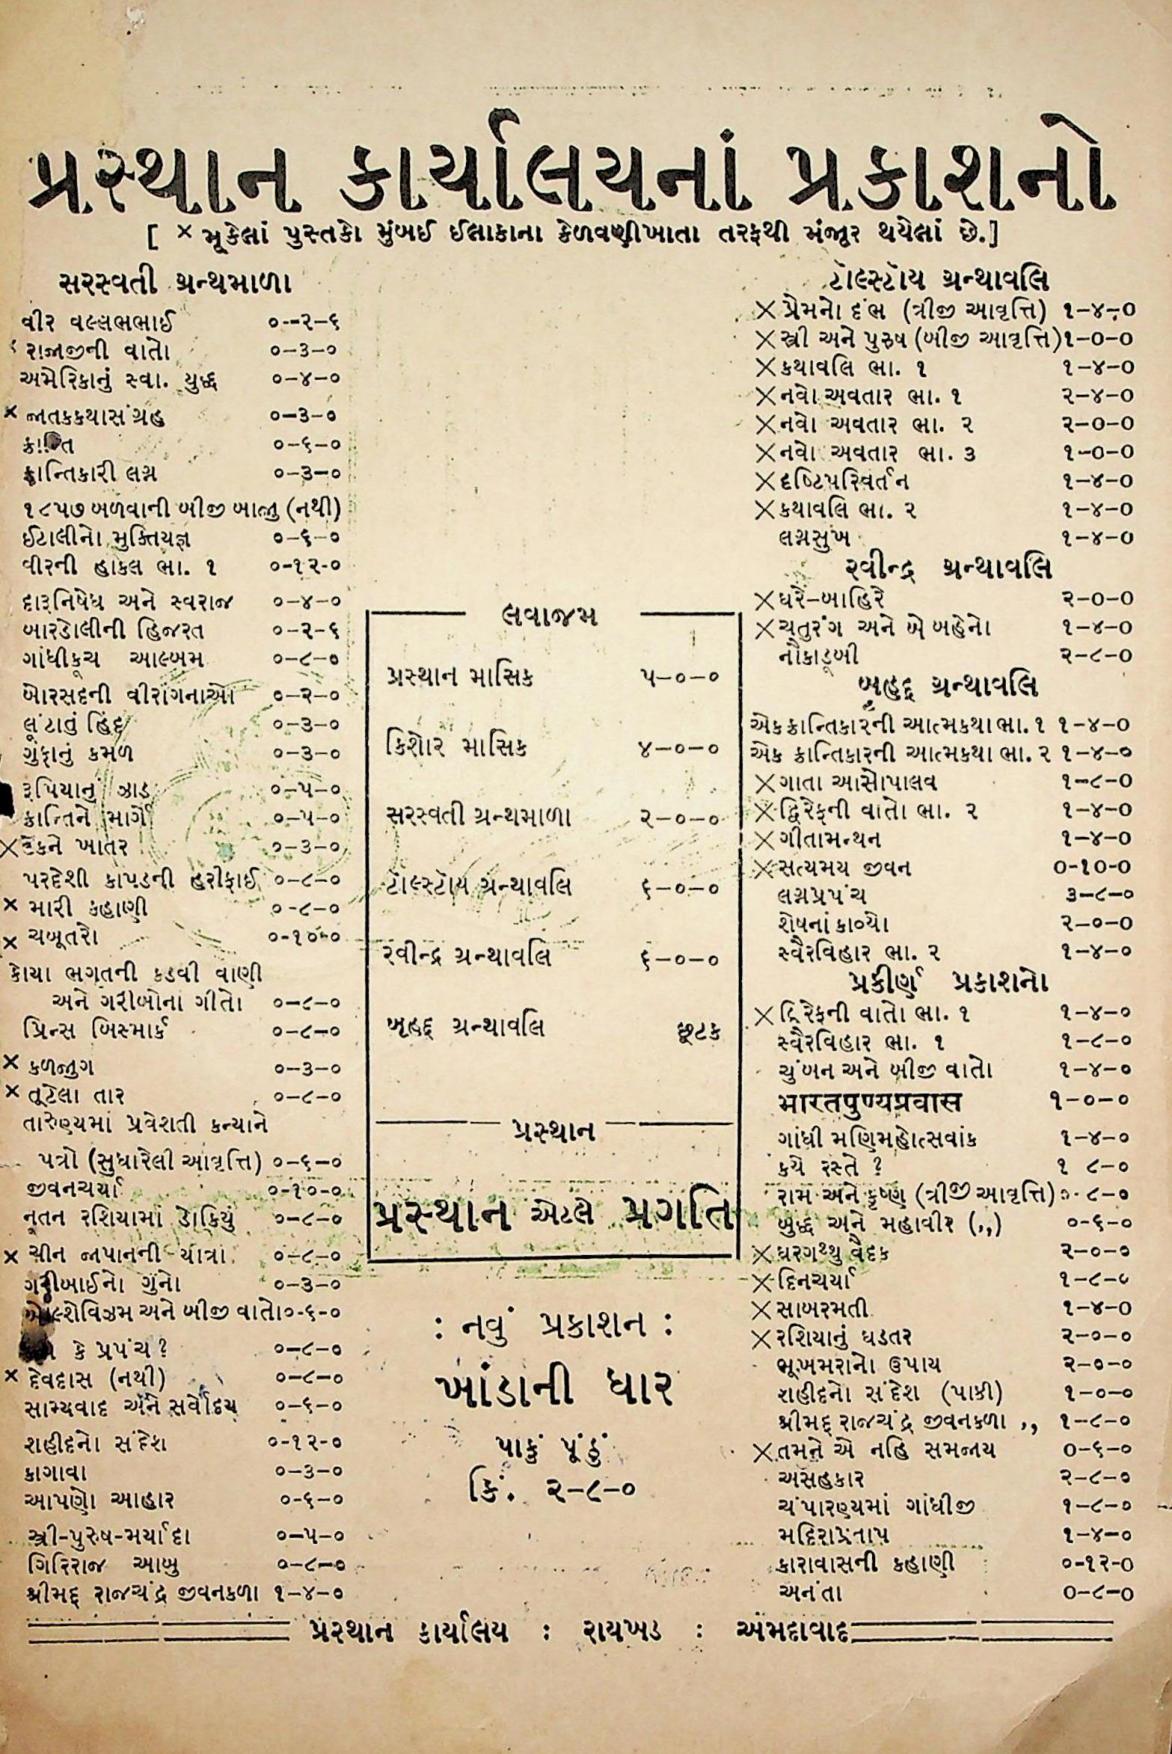 પ્રસ્થાન કાર્યાલયનાં પ્રકાશનો
[ × મૂકેલાં પુસ્તકો મુંબઈ ઈલાકાના કેળવણીખાતા તરફથી મંજૂર થયેલાં છે.]
સરસ્વતી ગ્રન્થમાળા
વીર વલ્લભભાઈ ૦-૨-૬
રાજાજીની વાતો ૦-૩-૦
અમેરિકાનું સ્વા. યુદ્ધ ૦-૪-૦
× જાતકકથાસંગ્રહ ૦-૩-૦
ક્રાન્તિ ૦-૬-૦
ક્રાન્તિકારી લગ્ન ૦-૩-૦
૧૮૫૭ બળવાની બીજી બાજુ (નથી)
ઈટાલીનો મુક્તિયજ્ઞ ૦-૬-૦
વીરની હાકલ ભા. ૧ ૦-૧૨-૦
દારૂનિષેધ અને સ્વરાજ ૦-૪-૦
બારડોલીની હિજરત ૦-૨-૬
ગાંધીકૂચ આલ્બમ ૦-૮-૦
બોરસદની વીરાંગનાઓ ૦-૨-૦
લૂંટાતું હિંદ ૦-૩-૦
ગુફાનું કમળ ૦-૩-૦
રૂપિયાનું ઝાડ ૦-૫-૦
ક્રાન્તિને માર્ગે ૦-૫-૦
× ટેકને ખાતર ૦-૩-૦
પરદેશી કાપડની હરીફાઈ ૦-૮-૦
× મારી કહાણી ૦-૮-૦
× ચબૂતરો ૦-૧૦-૦
કોયા ભગતની કડવી વાણી
અને ગરીબોનાં ગીતો ૦-૮-૦
પ્રિન્સ બિસ્માર્ક ૦-૮-૦
× કળજુગ ૦-૩-૦
× તૂટેલા તાર ૦-૮-૦
તારુણ્યમાં પ્રવેશતી કન્યાને
પત્રો (સુધારેલી આવૃત્તિ) ૦-૬-૦
જીવનચર્યા ૦-૧૦-૦
નૂતન રશિયામાં ડોકિયું ૦-૮-૦
× ચીન જાપાનની યાત્રા ૦-૮-૦
ગરીબાઈનો ગુનો ૦-૩-૦
બોલ્શેવિઝમ અને બીજી વાતો ૦-૬-૦
કે પ્રપંચ? ૦-૮-૦
× દેવદાસ (નથી) ૦-૮-૦
સામ્યવાદ અને સર્વોદય ૦-૬-૦
શહીદનો સંદેશ ૦-૧૨-૦
કાગાવા ૦-૩-૦
આપણો આહાર ૦-૬-૦
સ્ત્રી-પુરુષ-મર્યાદા ૦-૫-૦
ગિરિરાજ આબુ ૦-૮-૦
શ્રીમદ્દ રાજચંદ્ર જીવનકળા ૧-૪-૦
લવાજમ
પ્રસ્થાન માસિક ૫-૦-૦
કિશોર માસિક ૪-૦-૦
સરસ્વતી ગ્રન્થમાળા ૨-૦-૦
ટૉલ્સ્ટૉય ગ્રન્થાવલિ ૬-૦-૦
રવીન્દ્ર ગ્રન્થાવલિ ૬-૦-૦
બૃહદ્દ ગ્રન્થાવલિ છૂટક
પ્રસ્થાન
પ્રસ્થાન એટલે પ્રગતિ
: નવું પ્રકાશન :
ખાંડાની ધાર
પાકું પૂંઠું
કિં. ૨-૮-૦
ટૉલ્સ્ટૉય ગ્રન્થાવલિ
× પ્રેમનો દંભ (ત્રીજી આવૃત્તિ) ૧-૪-૦
× સ્ત્રી અને પુરુષ (બીજી આવૃત્તિ) ૧-૦-૦
× કથાવલિ ભા. ૧ ૧-૪-૦
× નવો અવતાર ભા. ૧ ૨-૪-૦
× નવો અવતાર ભા. ૨ ૨-૦-૦
× નવો અવતાર ભા. ૩ ૧-૦-૦
× દૃષ્ટિપરિવર્તન ૧-૪-૦
× કથાવલિ ભા. ૨ ૧-૪-૦
લગ્નસુખ ૧-૪-૦
રવીન્દ્ર ગ્રન્થાવલિ
× ઘરે-બાહિરે ૨-૦-૦
× ચતુરંગ અને બે બહેનો ૧-૪-૦
નૌકાડૂબી ૨-૮-૦
બૃહદ્દ ગ્રન્થાવલિ
એક ક્રાન્તિકારની આત્મકથા ભા. ૧ ૧-૪-૦
એક ક્રાન્તિકારની આત્મકથા ભા. ૨ ૧-૪-૦
× ગાતા આસોપાલવ ૧-૮-૦
× દ્વિરેફની વાતો ભા. ૨ ૧-૪-૦
× ગીતામન્થન ૧-૪-૦
× સત્યમય જીવન ૦-૧૦-૦
લગ્નપ્રપંચ ૩-૮-૦
શેષનાં કાવ્યો ૨-૦-૦
સ્વૈરવિહાર ભા. ૨ ૧-૪-૦
પ્રકીર્ણ પ્રકાશનો
× દ્વિરેફની વાતો ભા. ૧ ૧-૪-૦
સ્વૈરવિહાર ભા. ૧ ૧-૮-૦
ચુંબન અને બીજી વાતો ૧-૪-૦
भारतपुण्यप्रवास ૧-૦-૦
ગાંધી મણિમહોત્સવાંક ૧-૪-૦
કયે રસ્તે ? ૧ ૮-૦
રામ અને કૃષ્ણ (ત્રીજી આવૃત્તિ) ૦-૮-૦
બુદ્ધ અને મહાવીર (,,) ૦-૬-૦
× ઘરગથ્થુ વૈદક ૨-૦-૦
× દિનચર્યા ૧-૮-૦
× સાબરમતી ૧-૪-૦
× રશિયાનું ઘડતર ૨-૦-૦
ભૂખમરાનો ઉપાય ૨-૦-૦
શહીદનો સંદેશ (પાકી) ૧-૦-૦
શ્રીમદ્દ રાજચંદ્ર જીવનકળા ,, ૧-૮-૦
× તમને એ નહિ સમજાય ૦-૬-૦
અસહકાર ૨-૮-૦
ચંપારણ્યમાં ગાંધીજી ૧-૮-૦
મદિરાપ્રતાપ ૧-૪-૦
કારાવાસની કહાણી ૦-૧૨-૦
અનંતા ૦-૮-૦
પ્રસ્થાન કાર્યાલય : રાયખડ : અમદાવાદ